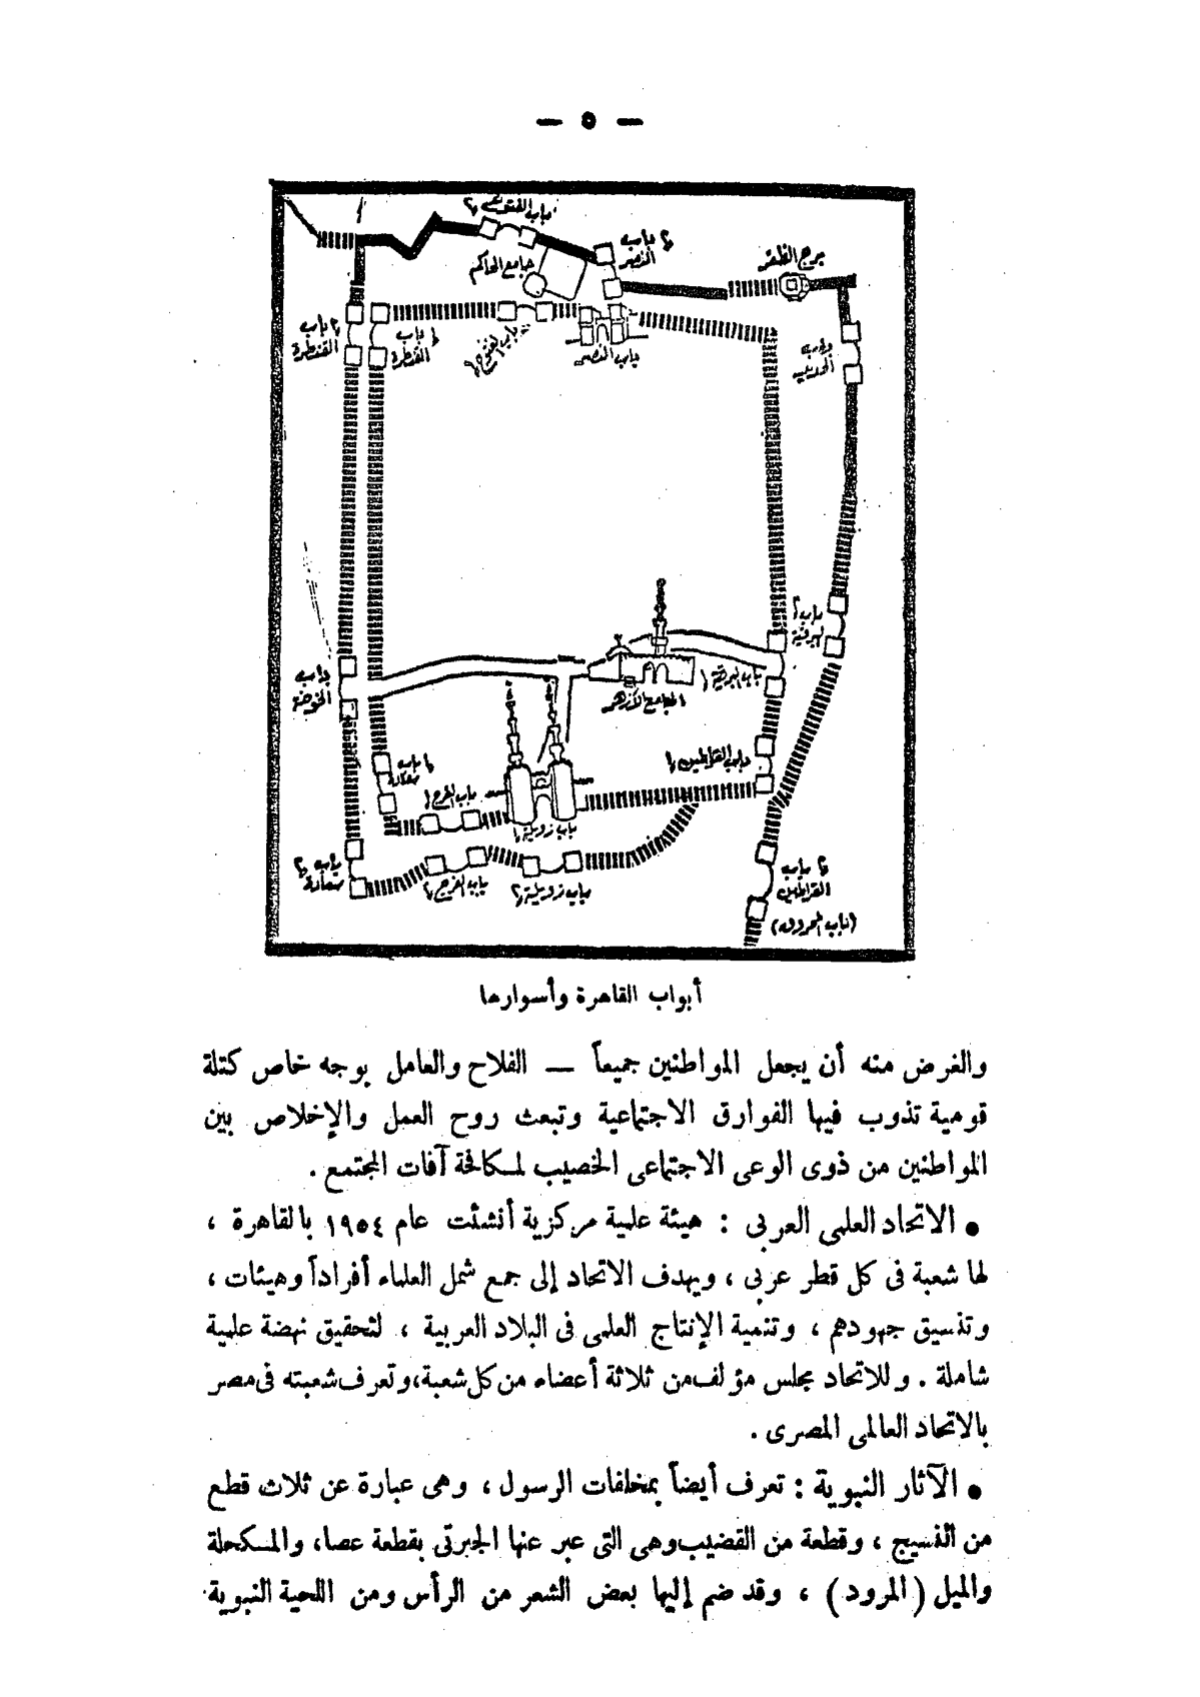 — ٥ —
باب الفتوح ٢
باب النصر ٢
برج الظفر
جامع الحاكم
باب القنطرة ٢
باب القنطرة ١
باب الفتوح ١
باب النصر
باب الحديد
باب البرقية ٢
باب البرقية ١
باب الخوخة
الجامع الأزهر
باب القراطين ١
باب سعادة ١
باب الفرج ١
باب زويلة ١
باب سعادة ٢
باب الفرج ٢
باب زويلة ٢
باب القراطين ٢
(باب المحروق)
أبواب القاهرة وأسوارها
والغرض منه أن يجعل المواطنين جميعاً — الفلاح والعامل بوجه خاص كتلة
قومية تذوب فيها الفوارق الاجتماعية وتبعث روح العمل والإخلاص بين
المواطنين من ذوى الوعى الاجتماعى الخصيب لمكافحة آفات المجتمع .
● الاتحاد العلمى العربى : هيئة علمية مركزية أنشئت عام ١٩٥٤ بالقاهرة ،
لها شعبة فى كل قطر عربى ، ويهدف الاتحاد إلى جمع شمل العلماء أفراداً وهيئات ،
وتنسيق جهودهم ، وتنمية الإنتاج العلمى فى البلاد العربية ، لتحقيق نهضة علمية
شاملة . وللاتحاد مجلس مؤلف من ثلاثة أعضاء من كل شعبة، وتعرف شعبته فى مصر
بالاتحاد العالمى المصرى .
● الآثار النبوية : تعرف أيضاً بمخلفات الرسول ، وهى عبارة عن ثلاث قطع
من النسيج ، وقطعة من القضيب وهى التى عبر عنها الجبرتى بقطعة عصا، والمكحلة
والميل (المرود) ، وقد ضم إليها بعض الشعر من الرأس ومن اللحية النبوية